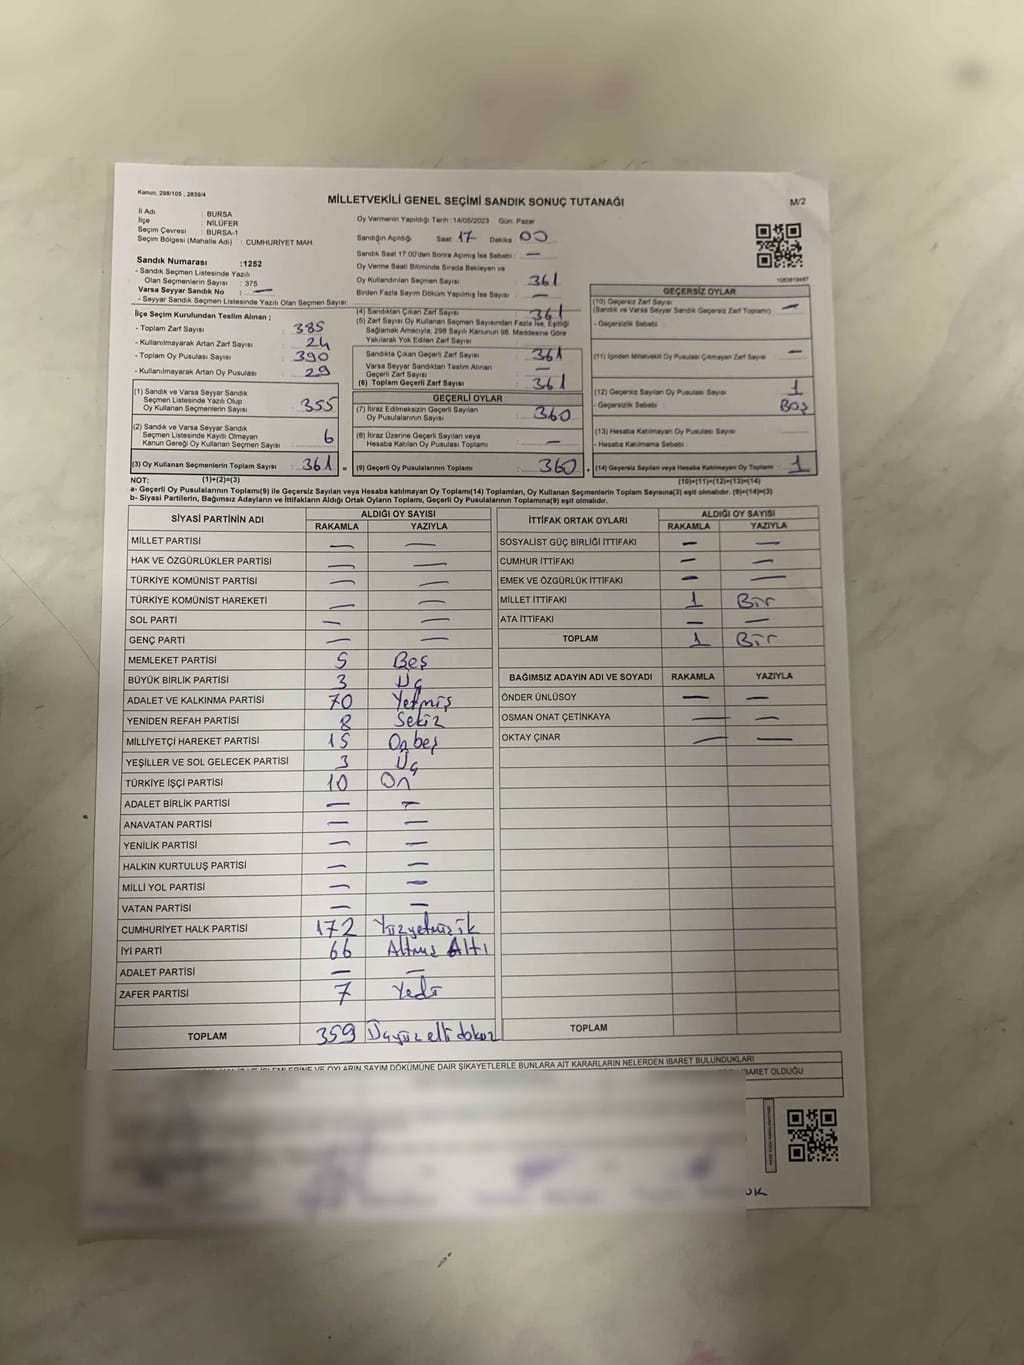 Kanun; 298/105 , 2839/4
MİLLETVEKİLİ GENEL SEÇİMİ SANDIK SONUÇ TUTANAĞI
M/2
İl Adı : BURSA
İlçe : NİLÜFER
Seçim Çevresi : BURSA-1
Seçim Bölgesi (Mahalle Adı) : CUMHURİYET MAH
Sandık Numarası :1252
- Sandık Seçmen Listesinde Yazılı
Olan Seçmenlerin Sayısı : 375
Varsa Seyyar Sandık No : —
- Seyyar Sandık Seçmen Listesinde Yazılı Olan Seçmen Sayısı:
İlçe Seçim Kurulundan Teslim Alınan ;
- Toplam Zarf Sayısı : 385
- Kullanılmayarak Artan Zarf Sayısı : 24
- Toplam Oy Pusulası Sayısı : 390
- Kullanılmayarak Artan Oy Pusulası : 29
(1) Sandık ve Varsa Seyyar Sandık
Seçmen Listesinde Yazılı Olup
Oy Kullanan Seçmenlerin Sayısı : 355
(2) Sandık ve Varsa Seyyar Sandık
Seçmen Listesinde Kayıtlı Olmayan
Kanun Gereği Oy Kullanan Seçmen Sayısı : 6
(3) Oy Kullanan Seçmenlerin Toplam Sayısı : 361 =
Oy Vermenin Yapıldığı Tarih : 14/05/2023 Gün: Pazar
Sandığın Açıldığı Saat 17 Dakika 00
Sandık Saat 17:00'den Sonra Açılmış İse Sebebi : —
Oy Verme Saati Bitiminde Sırada Bekleyen ve
Oy Kullandırılan Seçmen Sayısı : 361
Birden Fazla Sayım Döküm Yapılmış İse Sayısı : —
(4) Sandıktan Çıkan Zarf Sayısı : 361
(5) Zarf Sayısı Oy Kullanan Seçmen Sayısından Fazla İse, Eşitliği
Sağlamak Amacıyla; 298 Sayılı Kanunun 98. Maddesine Göre
Yakılarak Yok Edilen Zarf Sayısı :
Sandıkta Çıkan Geçerli Zarf Sayısı : 361
Varsa Seyyar Sandıktan Teslim Alınan
Geçerli Zarf Sayısı : —
(6) Toplam Geçerli Zarf Sayısı : 361
GEÇERLİ OYLAR
(7) İtiraz Edilmeksizin Geçerli Sayılan
Oy Pusulalarının Sayısı : 360
(8) İtiraz Üzerine Geçerli Sayılan veya
Hesaba Katılan Oy Pusulası Toplamı : —
(9) Geçerli Oy Pusulalarının Toplamı : 360 +
1083819487
GEÇERSİZ OYLAR
(10) Geçersiz Zarf Sayısı
(Sandık ve Varsa Seyyar Sandık Geçersiz Zarf Toplamı) : —
- Geçersizlik Sebebi :
(11) İçinden Milletvekili Oy Pusulası Çıkmayan Zarf Sayısı : —
(12) Geçersiz Sayılan Oy Pusulası Sayısı : 1
- Geçersizlik Sebebi : BOŞ
(13) Hesaba Katılmayan Oy Pusulası Sayısı :
- Hesaba Katılmama Sebebi :
(14) Geçersiz Sayılan veya Hesaba Katılmayan Oy Toplamı : 1
NOT: (1)+(2)=(3) (10)+(11)+(12)+(13)=(14)
a- Geçerli Oy Pusulalarının Toplamı(9) ile Geçersiz Sayılan veya Hesaba katılmayan Oy Toplamı(14) Toplamları, Oy Kullanan Seçmenlerin Toplam Sayısına(3) eşit olmalıdır. (9)+(14)=(3)
b- Siyasi Partilerin, Bağımsız Adayların ve İttifakların Aldığı Ortak Oyların Toplamı, Geçerli Oy Pusulalarının Toplamına(9) eşit olmalıdır.
SİYASİ PARTİNİN ADI ALDIĞI OY SAYISI
RAKAMLA YAZIYLA
MİLLET PARTİSİ — —
HAK VE ÖZGÜRLÜKLER PARTİSİ — —
TÜRKİYE KOMÜNİST PARTİSİ — —
TÜRKİYE KOMÜNİST HAREKETİ — —
SOL PARTİ — —
GENÇ PARTİ — —
MEMLEKET PARTİSİ 5 Beş
BÜYÜK BİRLİK PARTİSİ 3 Üç
ADALET VE KALKINMA PARTİSİ 70 Yetmiş
YENİDEN REFAH PARTİSİ 8 Sekiz
MİLLİYETÇİ HAREKET PARTİSİ 15 Onbeş
YEŞİLLER VE SOL GELECEK PARTİSİ 3 Üç
TÜRKİYE İŞÇİ PARTİSİ 10 On
ADALET BİRLİK PARTİSİ — —
ANAVATAN PARTİSİ — —
YENİLİK PARTİSİ — —
HALKIN KURTULUŞ PARTİSİ — —
MİLLİ YOL PARTİSİ — —
VATAN PARTİSİ — —
CUMHURİYET HALK PARTİSİ 172 Yüzyetmişik
İYİ PARTİ 66 Altmış Altı
ADALET PARTİSİ — —
ZAFER PARTİSİ 7 Yedi
TOPLAM 359 Üçyüz elli dokuz
İTTİFAK ORTAK OYLARI ALDIĞI OY SAYISI
RAKAMLA YAZIYLA
SOSYALİST GÜÇ BİRLİĞİ İTTİFAKI — —
CUMHUR İTTİFAKI — —
EMEK VE ÖZGÜRLÜK İTTİFAKI — —
MİLLET İTTİFAKI 1 Bir
ATA İTTİFAKI — —
TOPLAM 1 Bir
BAĞIMSIZ ADAYIN ADI VE SOYADI RAKAMLA YAZIYLA
ÖNDER ÜNLÜSOY — —
OSMAN ONAT ÇETİNKAYA — —
OKTAY ÇINAR — —
TOPLAM
OYLARIN SAYIM DÖKÜMÜNE DAİR ŞİKAYETLERLE BUNLARA AİT KARARLARIN NELERDEN İBARET BULUNDUKLARI
İBARET OLDUĞU